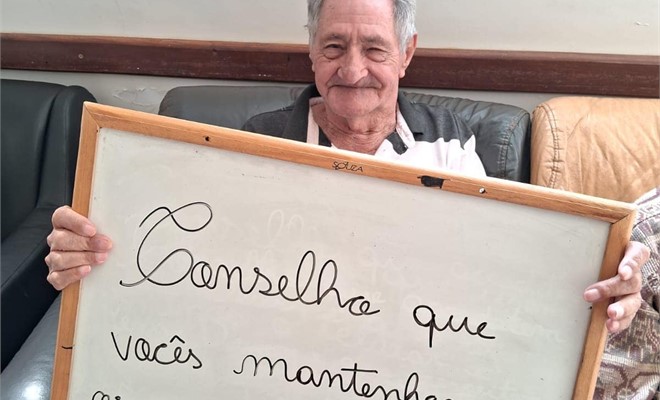 SOUZA
Conselho que
vocês mantenha